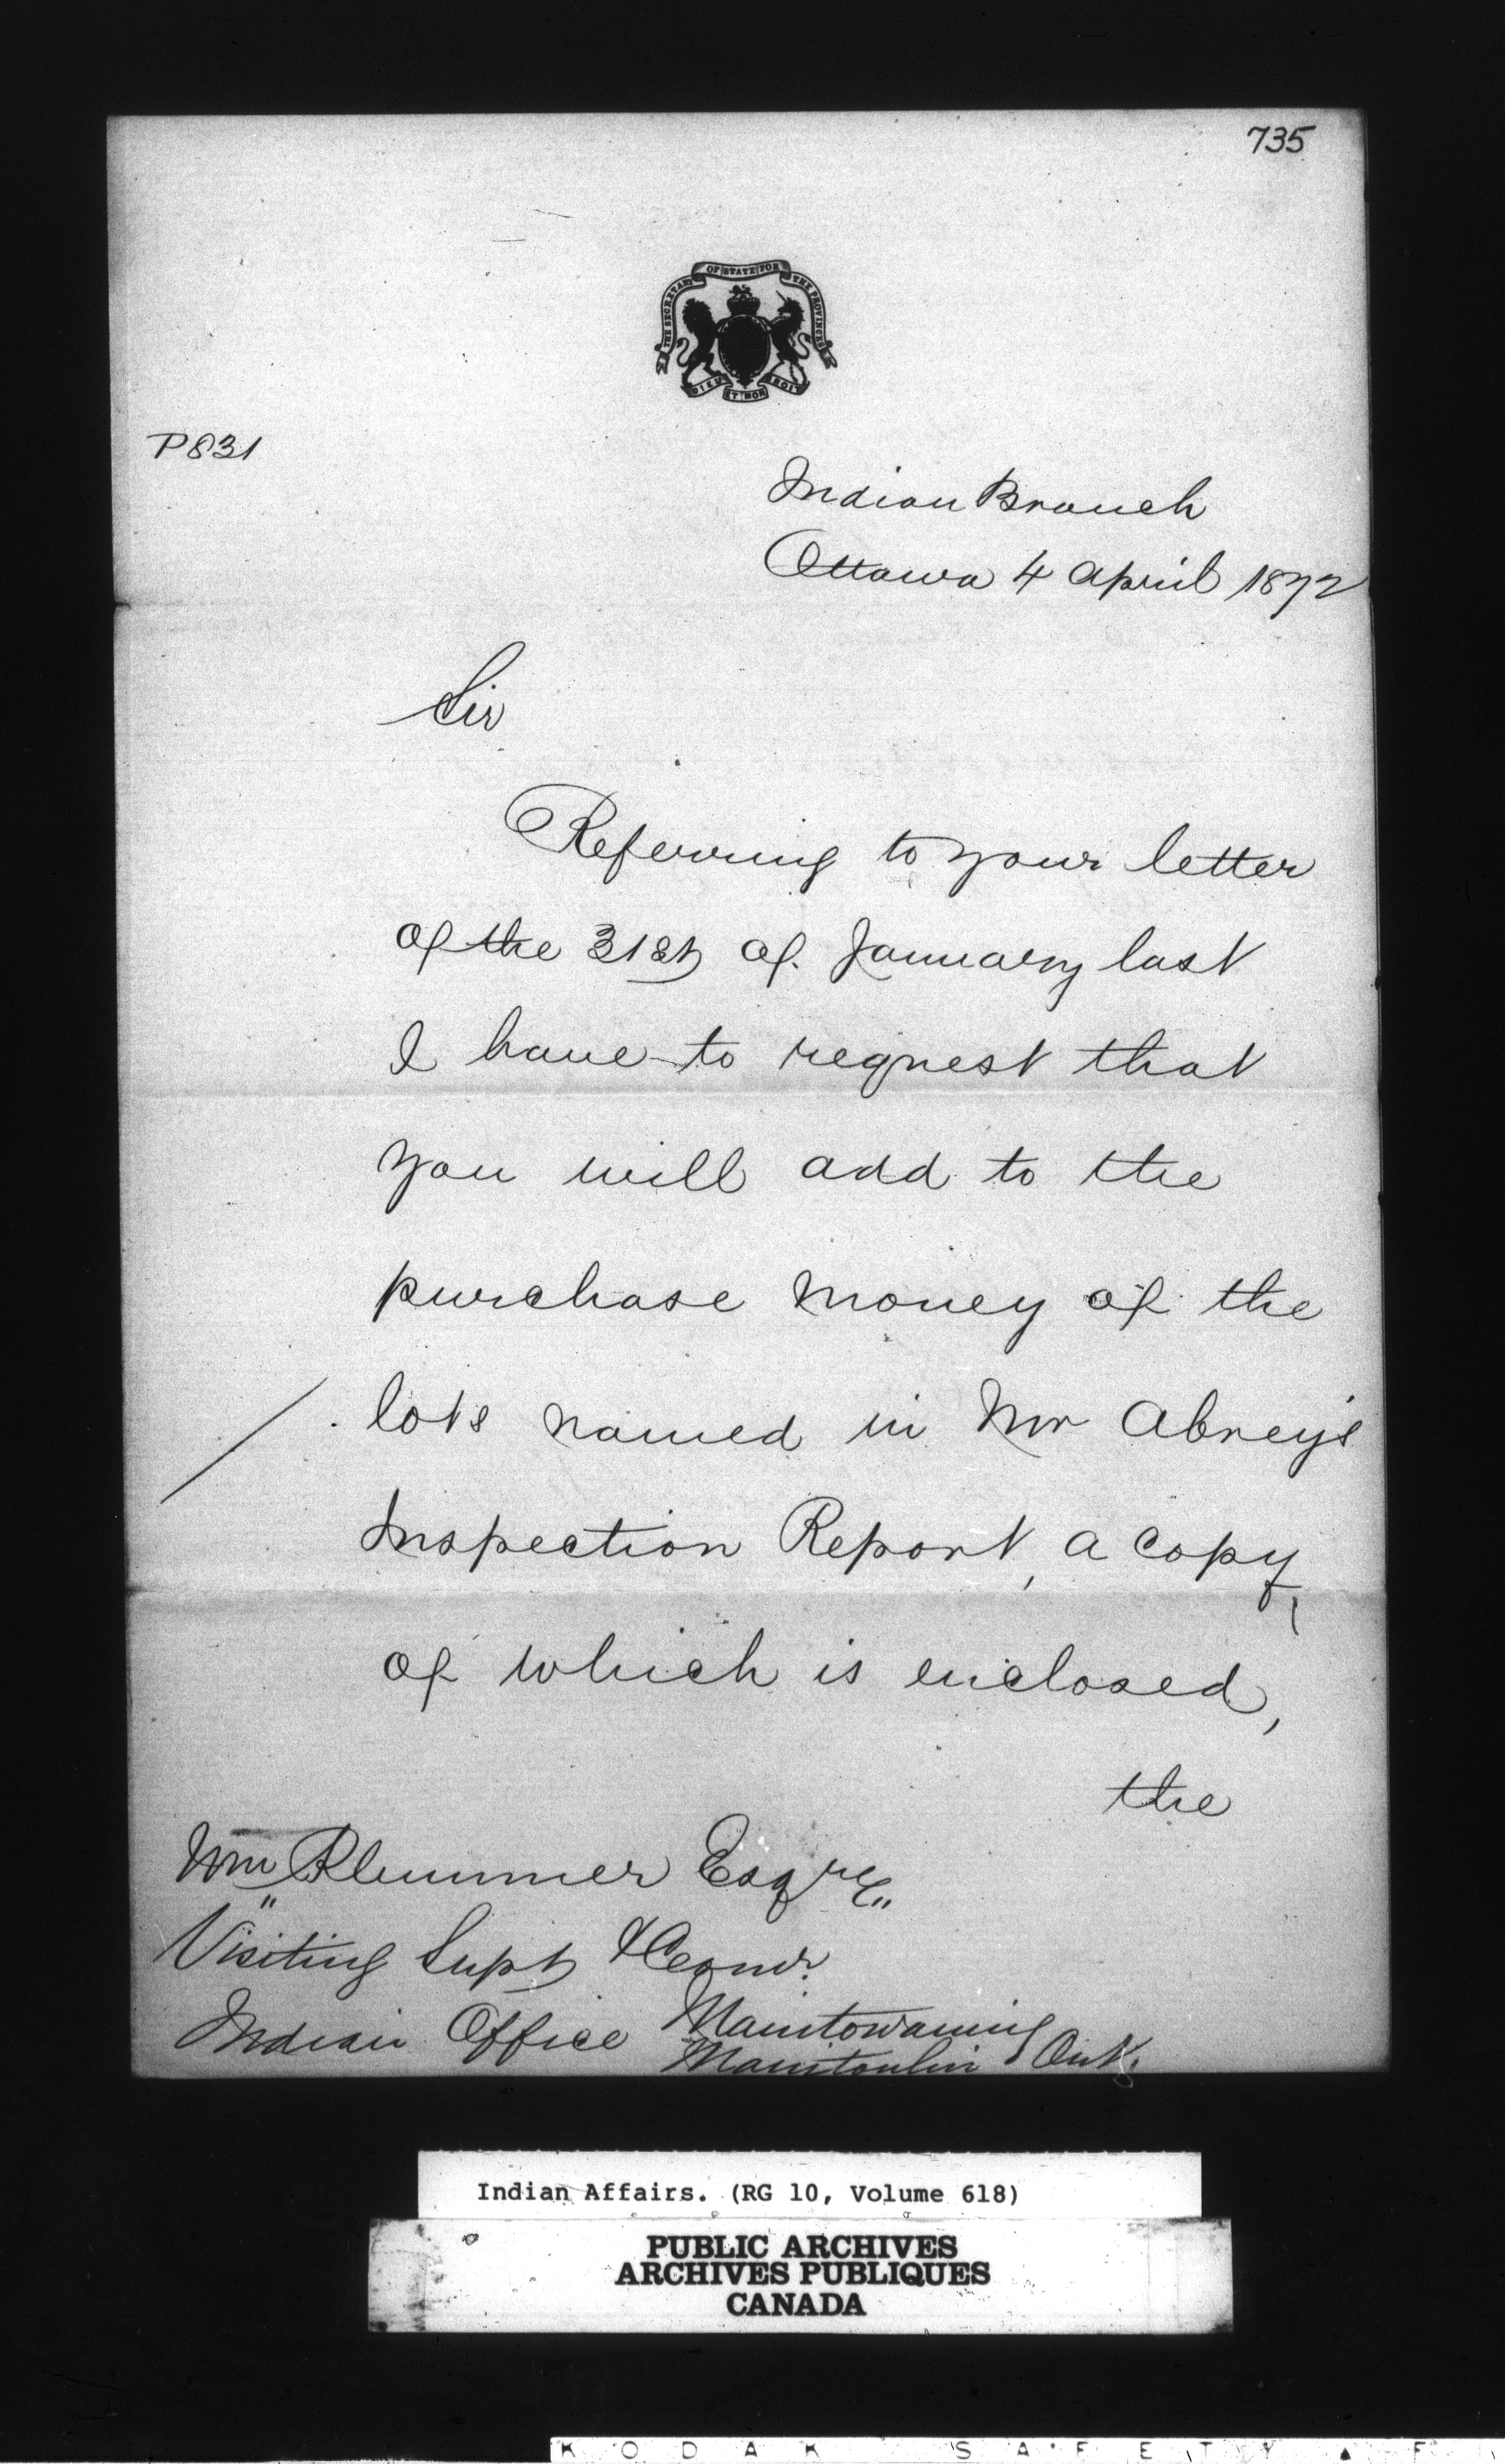 735
THE SECRETARY OF STATE FOR THE PROVINCES
DIEU ET MON DROIT
P831
Indian Branch
Ottawa 4 April 1872
Sir
Referring to your letter
of the 31st of January last
I have to request that
you will add to the
purchase money of the
lots named in Mr Abrey's
Inspection Report, a copy,
of which is enclosed,
the
Wm Plummer Esqre
Visiting Supt & Comr.
Indian Office Manitowaning
Manitoulin Ont.
Indian Affairs. (RG 10, Volume 618)
PUBLIC ARCHIVES
ARCHIVES PUBLIQUES
CANADA
KODAK SAFETY F